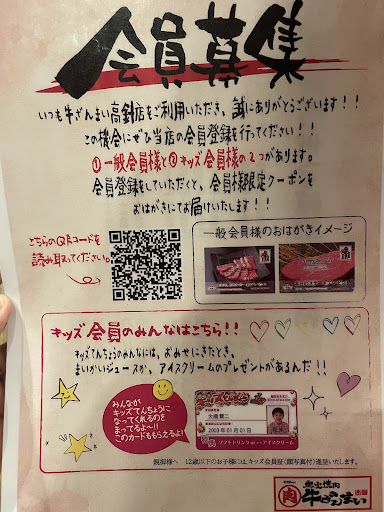 会員募集
いつも牛ざんまい高針店をご利用いただき、誠にありがとうございます！！
この機会にぜひ当店の会員登録を行ってください！！
①一般会員様と②キッズ会員様の２つがあります。
会員登録をしていただくと、会員様限定クーポンを
おはがきにてお届けいたします！！
こちらのQRコードを
読み取ってください。
一般会員様のおはがきイメージ
キッズ会員のみんなはこちら！！
キッズてんちょうのみんなには、おみせにきたとき、
まいかいジュースか、アイスクリームのプレゼントがあるんだ！！
みんなが
キッズてんちょうに
なってくれるのを
まってるよ〜!!
このカードももらえるよ！
キッズてんちょう
大橋 賢二
2003年01月01日
ソフトドリンク or アイスクリーム
親御様へ 12歳以下のお子様には、キッズ会員証(顔写真付)進呈いたします。
炭火焼肉
牛ざんまい